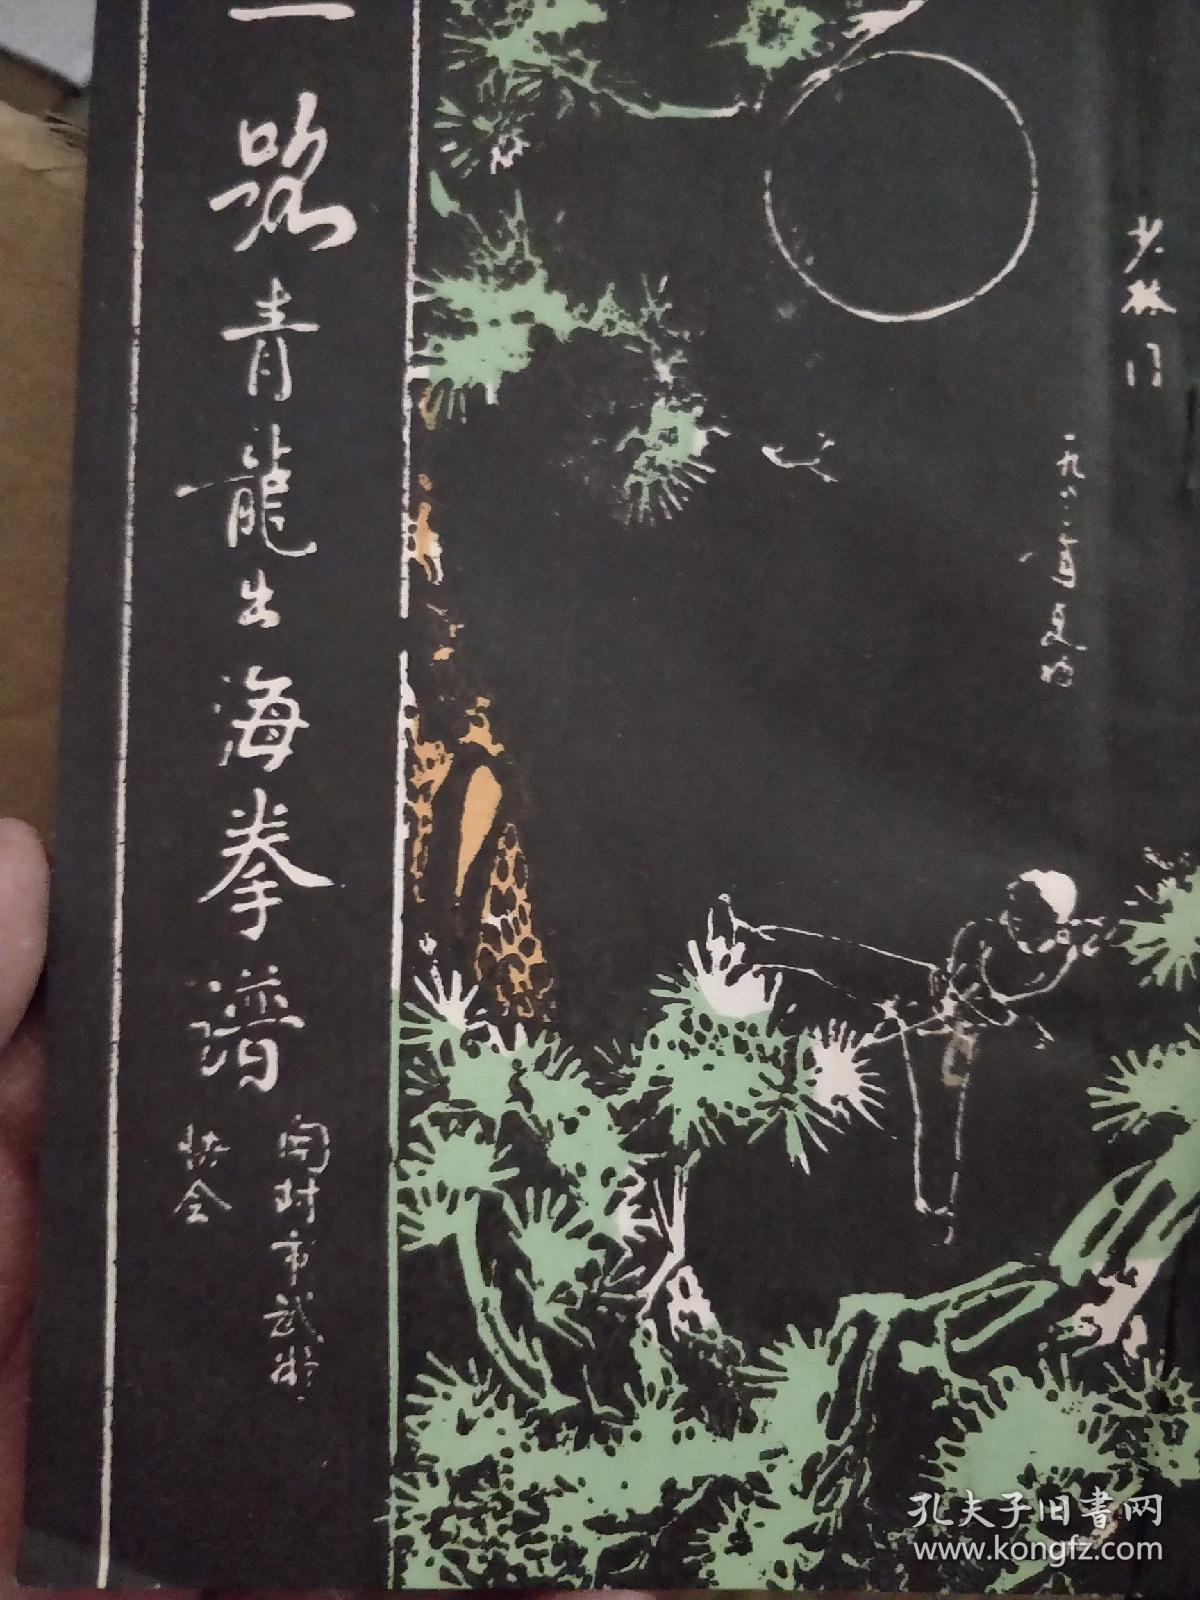 少林门
一九八二年夏
一路青龍出海拳谱
開封市武術
协会
孔夫子旧書网
www.kongfz.com